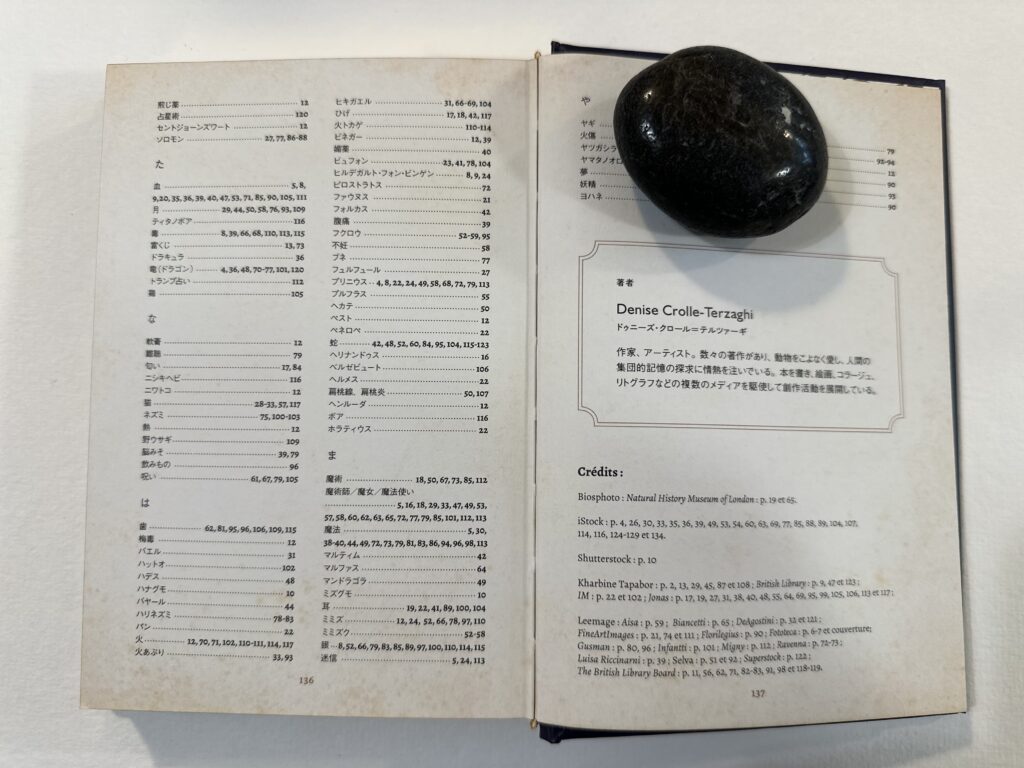 煎じ薬 12
占星術 120
セントジョーンズワート 12
ソロモン 27, 77, 86-88
た
血 5, 8,
9, 20, 35, 36, 39, 40, 47, 53, 71, 85, 90, 105, 111
月 29, 44, 50, 58, 76, 93, 109
ティタノボア 116
毒 8, 39, 66, 68, 110, 113, 115
富くじ 13, 73
ドラキュラ 36
竜(ドラゴン) 4, 36, 48, 70-77, 101, 120
トランプ占い 112
105
な
軟膏 12
難聴 79
匂い 17, 84
ニシキヘビ 116
ニワトコ 12
猫 28-33, 57, 117
ネズミ 75, 100-103
熱 12
野ウサギ 109
脳みそ 39, 79
飲みもの 96
呪い 61, 67, 79, 105
は
歯 62, 81, 95, 96, 106, 109, 115
梅毒 12
バエル 31
ハットオ 102
ハデス 48
ハナグモ 10
バヤール 44
ハリネズミ 78-83
パン 22
火 12, 70, 71, 102, 110-111, 114, 117
火あぶり 33, 93
ヒキガエル 31, 66-69, 104
ひげ 17, 18, 42, 117
火トカゲ 110-114
ビネガー 12, 39
媚薬 40
ビュフォン 23, 41, 78, 104
ヒルデガルト・フォン・ビンゲン 8, 9, 24
ピロストラトス 72
ファウヌス 21
フォルカス 42
腹痛 39
フクロウ 52-59, 95
不妊 58
ブネ 77
フュルフュール 27
プリニウス 4, 8, 22, 24, 49, 58, 68, 72, 79, 113
プルフラス 55
ヘカテ 50
ペスト 12
ペネロペ 22
蛇 42, 48, 52, 60, 84, 95, 104, 115-123
ヘリナンドゥス 16
ベルゼビュート 106
ヘルメス 22
扁桃線、扁桃炎 50, 107
ヘンルーダ 12
ボア 116
ホラティウス 22
ま
魔術 18, 50, 67, 73, 85, 112
魔術師/魔女/魔法使い
5, 16, 18, 29, 33, 47, 49, 53,
57, 58, 60, 62, 63, 65, 72, 77, 79, 85, 101, 112, 113
魔法 5, 30,
38-40, 44, 49, 72, 73, 79, 81, 83, 86, 94, 96, 98, 113
マルティム 42
マルファス 64
マンドラゴラ 49
ミズグモ 10
耳 19, 22, 41, 89, 100, 104
ミミズ 12, 24, 52, 66, 78, 97, 110
ミミズク 52-58
銀 8, 52, 66, 79, 83, 85, 89, 97, 100, 110, 114, 115
迷信 5, 24, 113
136
や
ヤギ
火傷
ヤツガシラ 79
ヤマタノオロ 92-94
夢 12
妖精 90
ヨハネ 95
90
著者
Denise Crolle-Terzaghi
ドゥニーズ・クロール=テルツァーギ
作家、アーティスト。数々の著作があり、動物をこよなく愛し、人間の
集団的記憶の探求に情熱を注いでいる。本を書き、絵画、コラージュ、
リトグラフなどの複数のメディアを駆使して創作活動を展開している。
Crédits :
Biosphoto : Natural History Museum of London : p. 19 et 65.
iStock : p. 4, 26, 30, 33, 35, 36, 39, 49, 53, 54, 60, 63, 69, 77, 85, 88, 89, 104, 107,
114, 116, 124-129 et 134.
Shutterstock : p. 10
Kharbine Tapabor : p. 2, 13, 29, 45, 87 et 108 ; British Library : p. 9, 47 et 123 ;
IM : p. 22 et 102 ; Jonas : p. 17, 19, 27, 31, 38, 40, 48, 55, 64, 69, 95, 99, 105, 106, 113 et 117 ;
Leemage : Aisa : p. 59 ; Biancetti : p. 65 ; DeAgostini : p. 32 et 121 ;
FineArtImages : p. 21, 74 et 111 ; Florilegius : p. 90 ; Fototeca : p. 6-7 et couverture;
Gusman : p. 80, 96 ; Infantti : p. 101 ; Migny : p. 112 ; Ravenna : p. 72-73 ;
Luisa Riccinarni : p. 39 ; Selva : p. 51 et 92 ; Superstock : p. 122 ;
The British Library Board : p. 11, 56, 62, 71, 82-83, 91, 98 et 118-119.
137